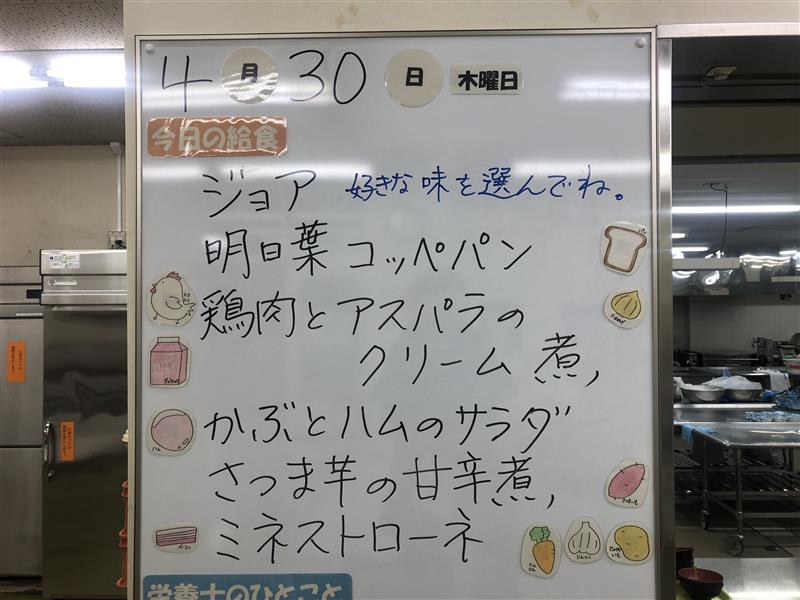 4月30日 木曜日
今日の給食
ジョア 好きな味を選んでね。
明日葉コッペパン
鶏肉とアスパラの
クリーム煮,
かぶとハムのサラダ
さつま芋の甘辛煮,
ミネストローネ
栄養士のひとこと